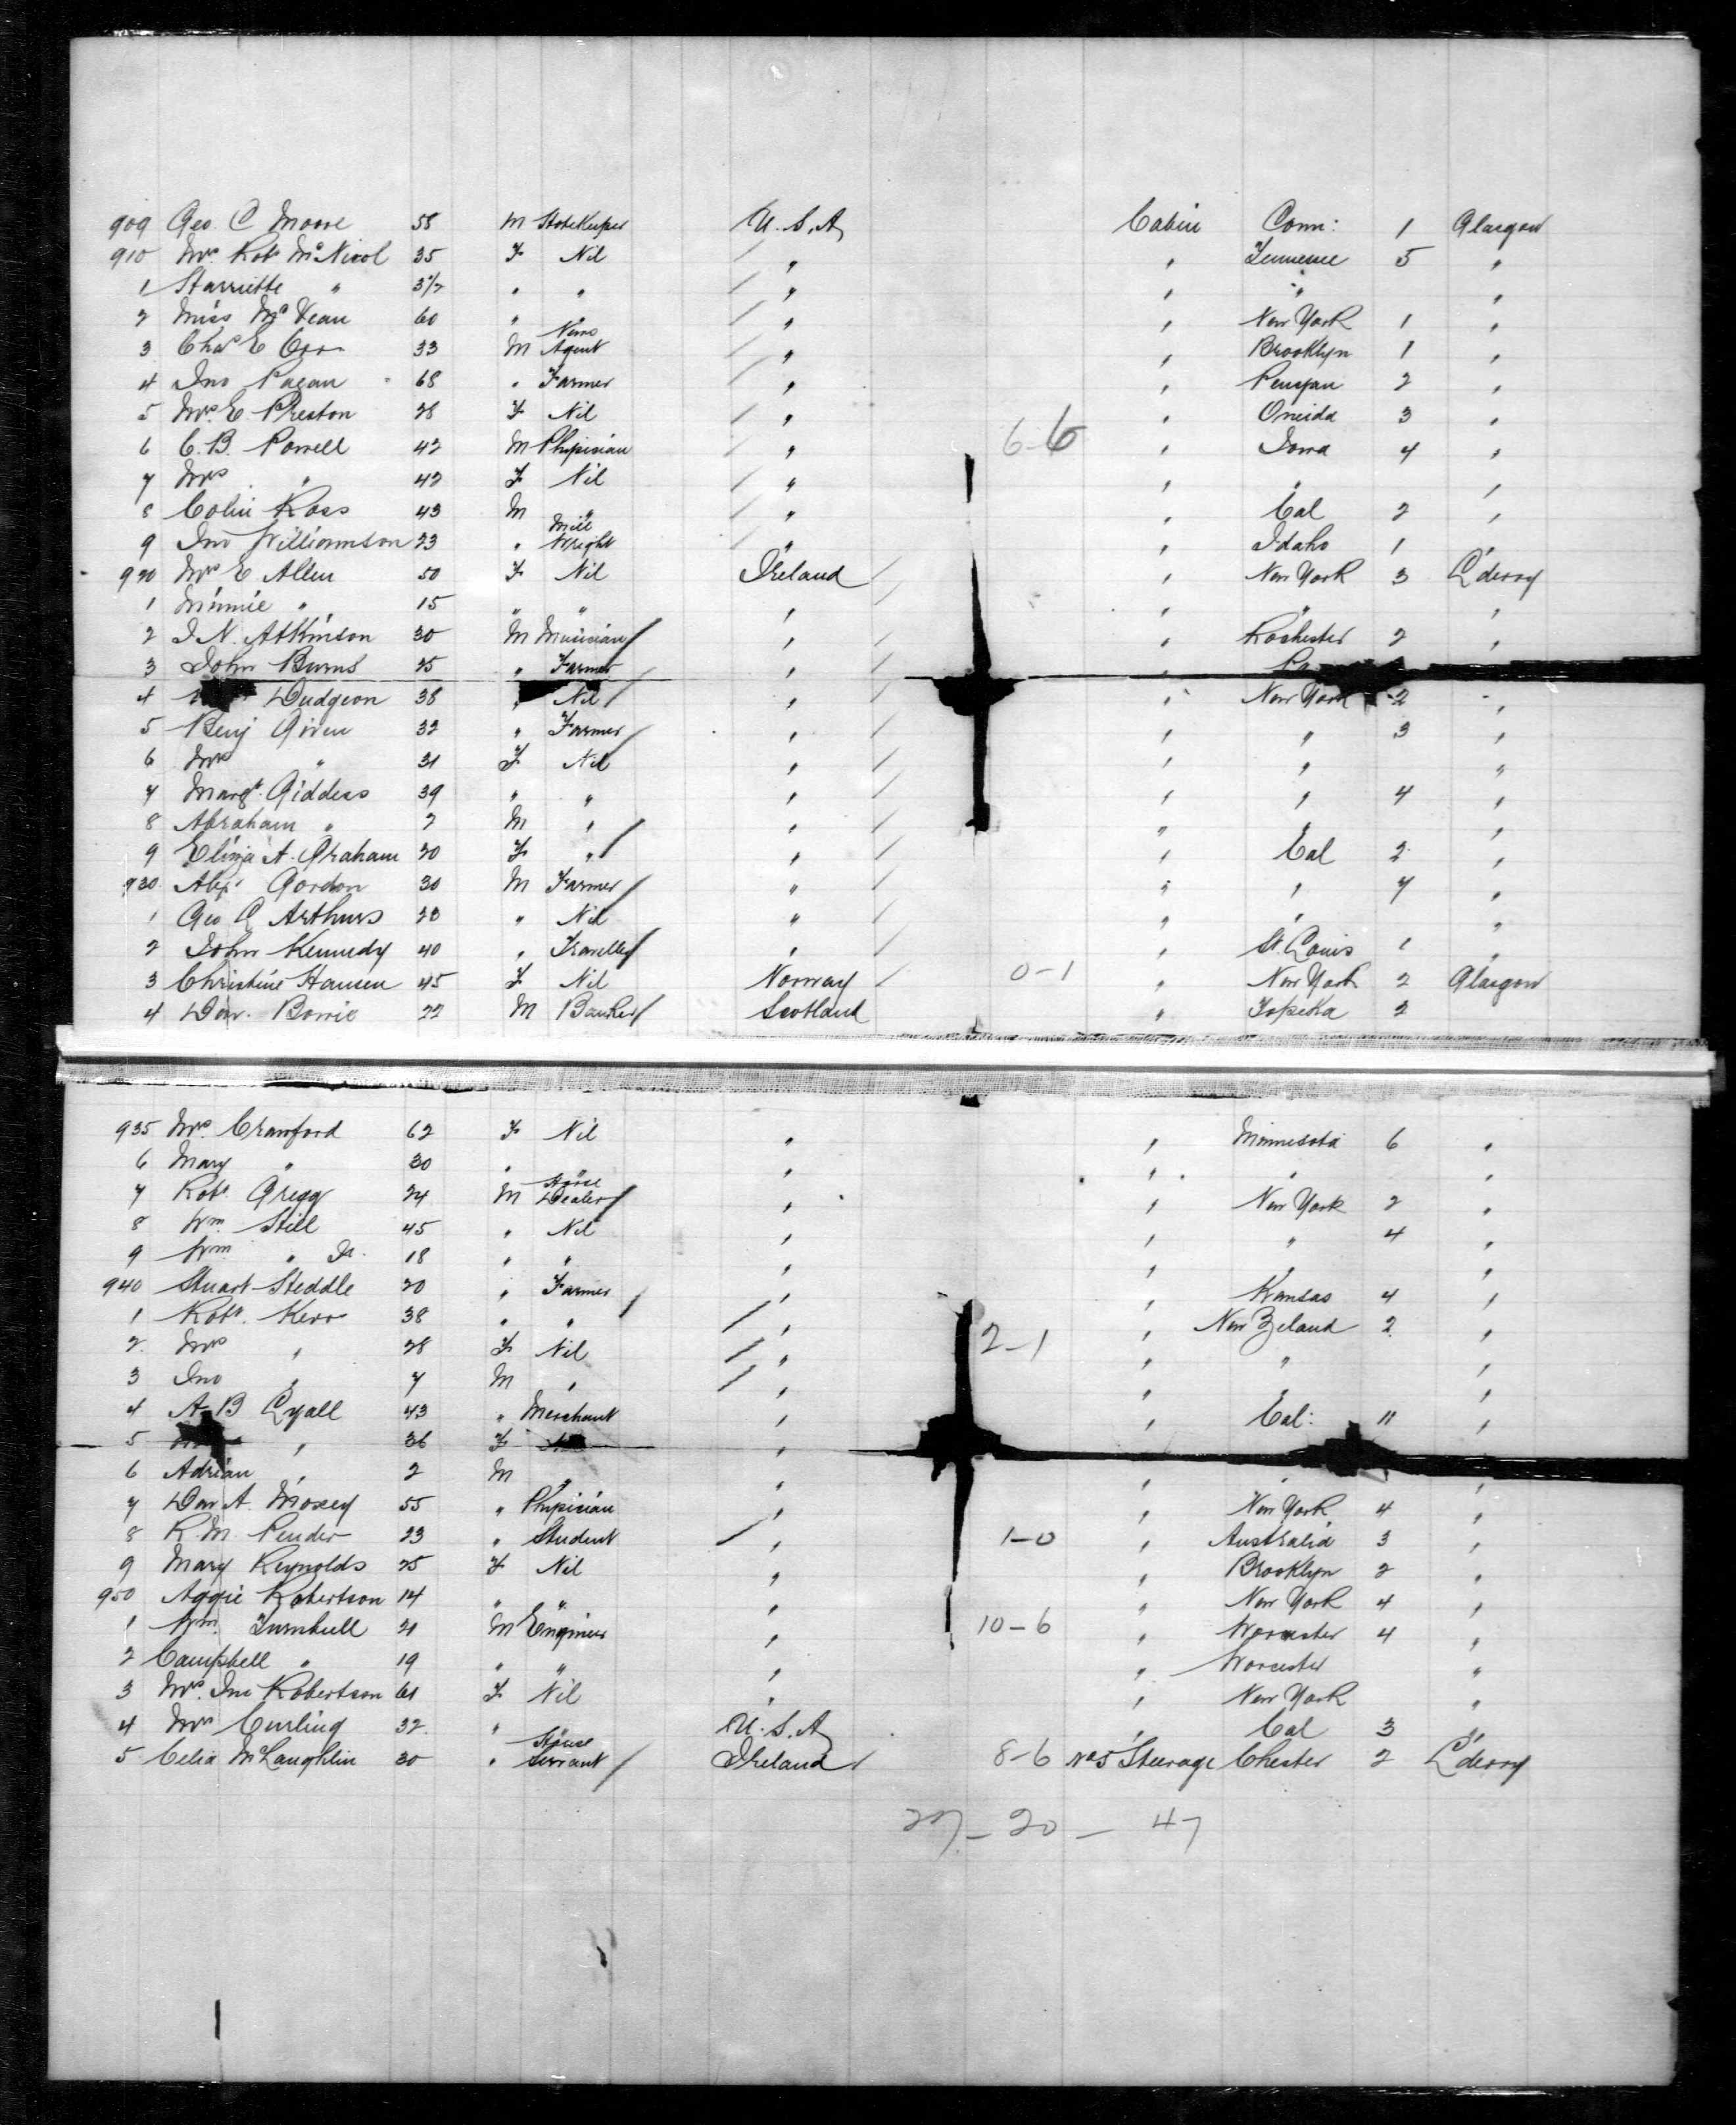 909 Geo. C Moore 58 M Storekeeper U.S.A. Cabin Conn: 1 Glasgow
910 Mrs. Robt McNicol 35 F Nil " " Tennessee 5 "
1 " 3½ " " " " " "
2 Miss 60 " " " " New York 1 "
3 Chas E 33 M News Agent " " Brooklyn 1 "
4 Jno Pagan 68 " Farmer " " Penyan 2 "
5 Mrs. E. Preston 28 F Nil " " Oneida 3 "
6 C.B. Powell 42 M Physician " 6-6 " Iowa 4 "
7 Mrs " 42 F Nil " " " "
8 Colin Ross 43 M " " " Cal 2 "
9 Jno Williamson 23 " Mill Wright " " Idaho 1 "
920 Mrs E Allen 50 F Nil Ireland " New York 3 L'derry
1 Minnie " 15 " " " " " "
2 J.N. Atkinson 30 M Musician " " Rochester 2 "
3 John Burns 25 " Farmer " "
4 Dudgeon 38 " Nil " " New York 2 "
5 Benj Given 32 " Farmer " " " 3 "
6 Mrs " 31 F Nil " " " "
7 Margt. Giddess 39 " " " " " 4 "
8 Abraham " 2 M " " " " "
9 Eliza A. Graham 20 F " " " Cal 2 "
930 Alexr Gordon 30 M Farmer " " " 7 "
1 Geo C Arthurs 28 " Nil " " " "
2 John Kennedy 40 " Traveller " " St. Louis 1 "
3 Christine Hansen 45 F Nil Norway 0-1 " New York 2 Glasgow
4 Dav. Bowie 22 M Banker Scotland " Topeka 2
935 Mrs. Crawford 62 F Nil " " Minnesota 6 "
6 Mary " 30 " " " " "
7 Robt. Gregg 24 M Horse Dealer " " New York 2 "
8 Wm. Still 45 " Nil " " " 4 "
9 Wm. " Jr. 18 " " " " " "
940 Stuart Steddle 20 " Farmer " " Kansas 4 "
1 Robt. Kerr 38 " " " " New Zeland 2 "
2 Mrs " 28 F Nil " 2-1 " " "
3 Jno " 7 M " " " "
4 A B Lyall 43 " Merchant " " Cal: 11 "
5 " 36 F "
6 Adrian " 2 M " " " " "
7 Dav A. Moxey 55 " Physician " " New York 4 "
8 R.M. Pender 23 " Student " 1-0 " Australia 3 "
9 Mary Reynolds 25 F Nil " " Brooklyn 2 "
950 Aggie Robertson 14 " " " " New York 4 "
1 Wm. Turnbull 21 M Engineer " 10-6 " Worcester 4 "
2 Campbell " 19 " " " " Worcester "
3 Mrs. Jno Robertson 61 F Nil " " New York "
4 Mrs Curling 32 " U.S.A. " Cal 3 "
5 Celia McLaughlin 30 " House Servant Ireland 8-6 No 5 Steerage Chester 2 L'derry
27-20-47